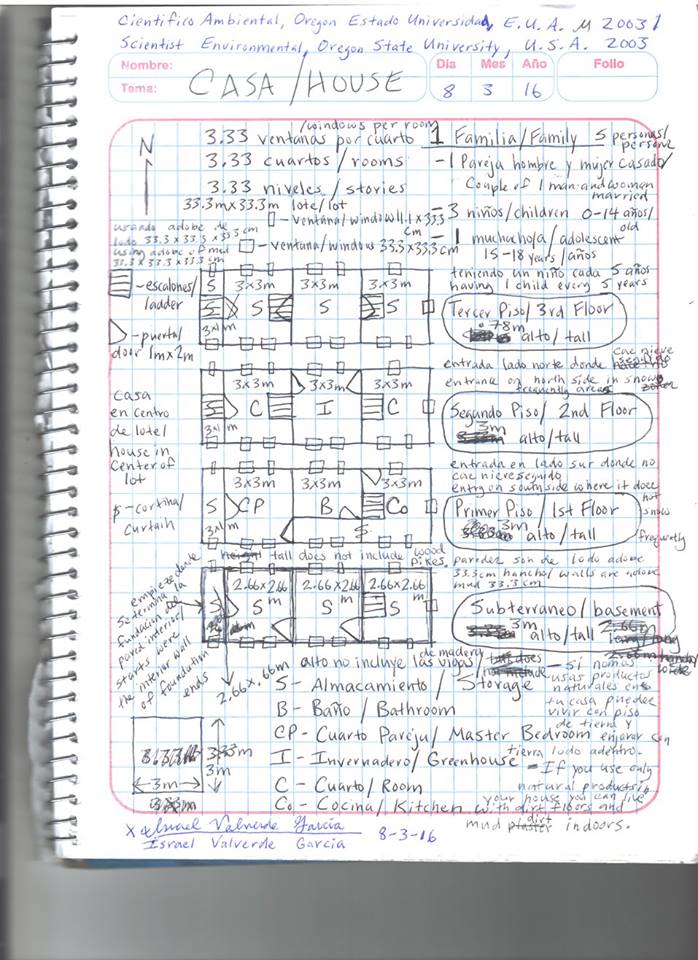 Cientifico Ambiental, Oregon Estado Universidad, E.U.A. M 2003/
Scientist Environmental, Oregon State University, U.S.A. 2003
Nombre:
Tema: CASA/HOUSE
Dia Mes Año Folio
8 3 16
N
3.33 ventanas por cuarto /windows per room
3.33 cuartos / rooms
3.33 niveles / stories
33.3m x 33.3m lote/lot
1 Familia/Family 5 personas/
persons
-1 Pareja hombre y mujer casado/
Couple of 1 man and woman
married
-3 niños/children 0-14 años/
old
-1 muchacho/a/adolescent
15-18 years/años
teniendo un niño cada 5 años
having 1 child every 5 years
- ventana/window 1.1 x 33.3
cm
- ventana/window 33.3x33.3cm
usando adobe de
lodo 33.3 x 33.3 x 33.3 cm
using adobe of mud
33.3 x 33.3 x 33.3 cm
- escalones/
ladder
- puerta/
door 1mx2m
S 3x3m 3x3m 3x3m
3x1m S S S
Tercer Piso/3rd Floor
.78m
alto/tall
casa
en centro
de lote/
house in
center of
lot
3x3m 3x3m 3x3m
S C I C
3x1m
entrada lado norte donde cae nieve
entrance on north side in snow
frequently areas
Segundo Piso/2nd Floor
3m
alto/tall
- cortina/
curtain
3x3m 3x3m 3x3m
S CP B Co
3x1m
entrada en lado sur donde no
cae nieve seguido
entry on south side where it does
not
snow
frequently
Primer Piso/1st Floor
3m
alto/tall
height tall does not include wood
pikes.
paredes son de lodo adobe
33.3cm hancho/walls are adobe
mud 33.3 cm
empiezo donde
se termina la
fundación de
pared interior/
starts were
the interior wall
of foundation
ends
2.66x2.66 2.66x2.66 2.66x2.66
m m m
S S S S
2.66x.66m
Subterraneo/basement
3m
alto/tall
alto no incluye las vigas
de madera/
3m
3m
S - Almacamiento/Storage
B - Baño/Bathroom
CP - Cuarto Pareja/Master Bedroom
I - Invernadero/Greenhouse
C - Cuarto/Room
Co - Cocina/Kitchen
- Si nomas
usas productos
naturales en
tu casa puedes
vivir con piso
de tierra y
enjarar con
tierra lodo adentro.
- If you use only
natural products in
your house you can live
with dirt floors and
mud dirt
indoors.
X Israel Valverde Garcia
Israel Valverde Garcia
8-3-16